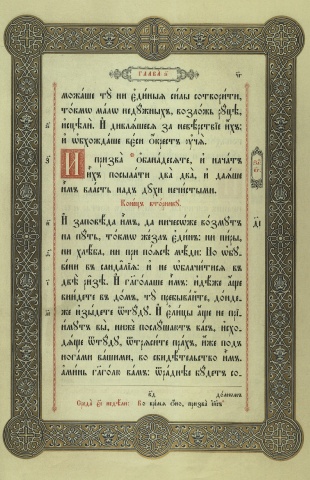 ГЛАВА ѕ҃.
можаше тꙋ ни є҆ди́ныѧ си́лы сотвори́ти,
то́кмѡ ма́лѡ недꙋ́жныхъ, возло́жь рꙋ́цѣ,
и҆сцѣлѝ. И҆ дивлѧ́шесѧ за невѣ́рствїе и҆́хъ:
и҆ ѡ҆бхожда́ше вє́си ѡ҆́крєстъ ᲂу҆чѧ̀.
И҆ призва̀ ѻ҆бана́десѧте, и҆ нача́тъ
и҆̀хъ посыла́ти два̀ два̀, и҆ даѧ́ше
и҆̀мъ вла́сть над̾ дꙋ̑хи нечи́стыми.
Коне́цъ вто́рникꙋ.
И҆ заповѣ́да и҆̀мъ, да ничесѡ́же во́змꙋтъ
на пꙋ́ть, то́кмѡ же́злъ є҆ди́нъ: ни пи́ры,
ни хлѣ́ба, ни при по́ѧсѣ мѣ́ди: Но ѡ҆бꙋ-
ве́ни въ санда̑лїѧ: и҆ не ѡ҆блачи́тисѧ въ
двѣ̀ ри̑зѣ. И҆ глаго́лаше и҆̀мъ: и҆дѣ́же а҆́ще
вни́дете въ до́мъ, тꙋ̀ пребыва́йте, до́нде-
же и҆зы́дете ѿтꙋ́дꙋ. И҆ є҆ли́цы а҆́ще не прї-
и́мꙋтъ вы̀, нижѐ послꙋ́шаютъ ва́съ, и҆сходѧ́-
ще ѿтꙋ́дꙋ, ѿтрѧси́те пра́хъ, и҆́же под̾
нога́ми ва́шими, во свидѣ́тельство и҆̀мъ.
а҆ми́нь гл҃го́лю ва́мъ: ѿра́днѣе бꙋ́детъ со-
до́мѡмъ
Среда̀ ... недѣ́ли: Во вре́мѧ ѻ҆́но, призва̀ і҆и҃съ